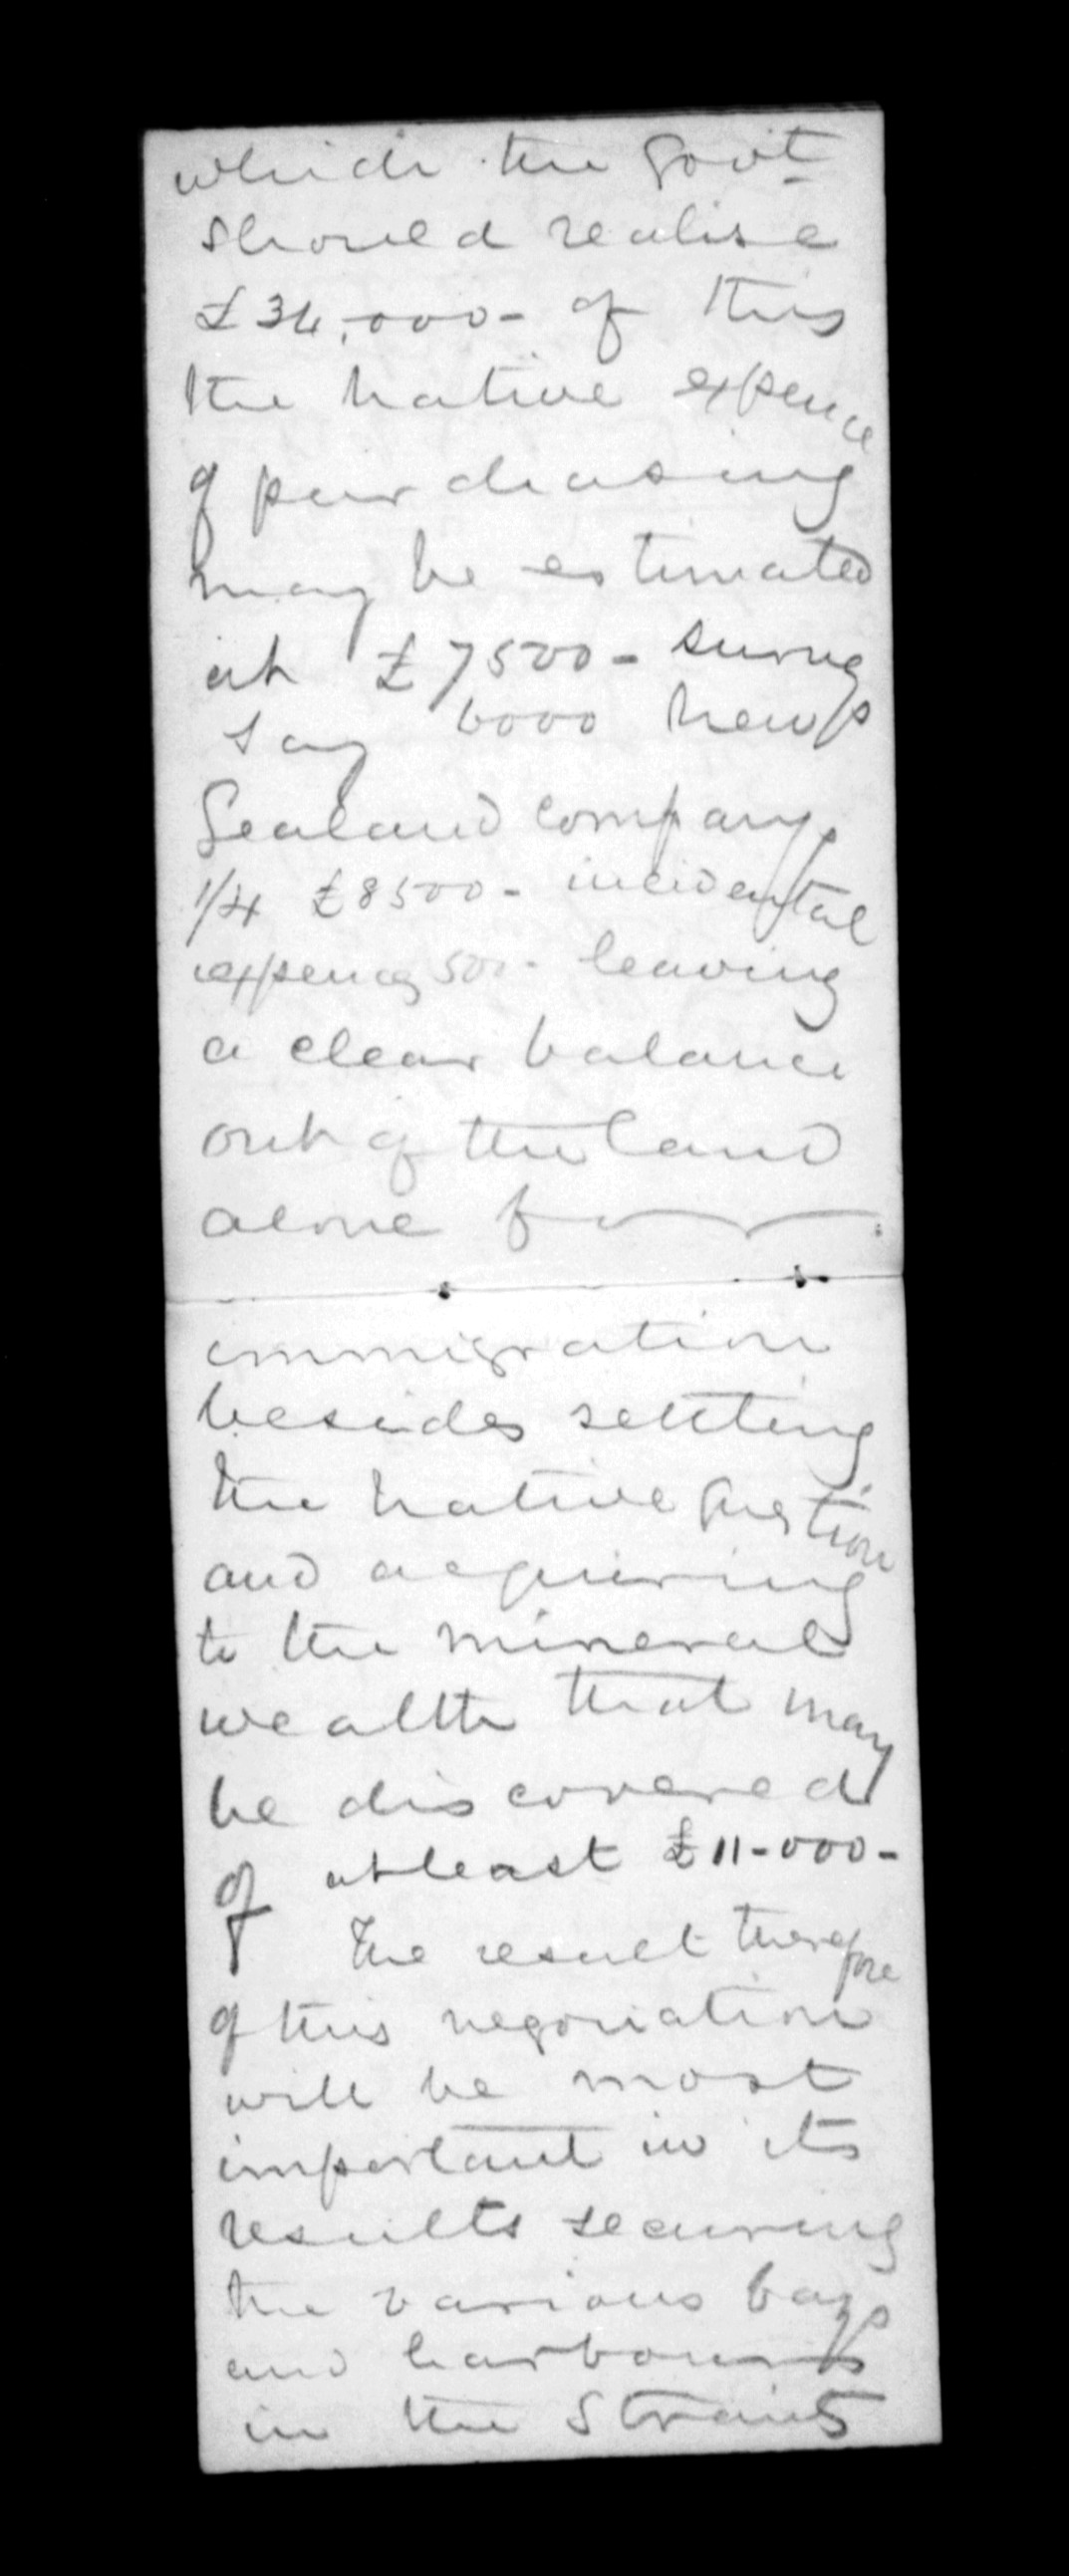 which the Govt
should realise
£34,000- of this
the native expence
of purchasing
may be estimated
at £7500- surveys
say 6000 New
Zealand company
1/4 £8500- incidental
expences 500- leaving
a clear balance
out of the land
alone for
immigration
besides settling
the native question
and acquiring
to the mineral
wealth that may
be discovered
of at least £11-000-
The result therefore
of this negociation
will be most
important in its
results securing
the various bays
and harbours
in the Straits